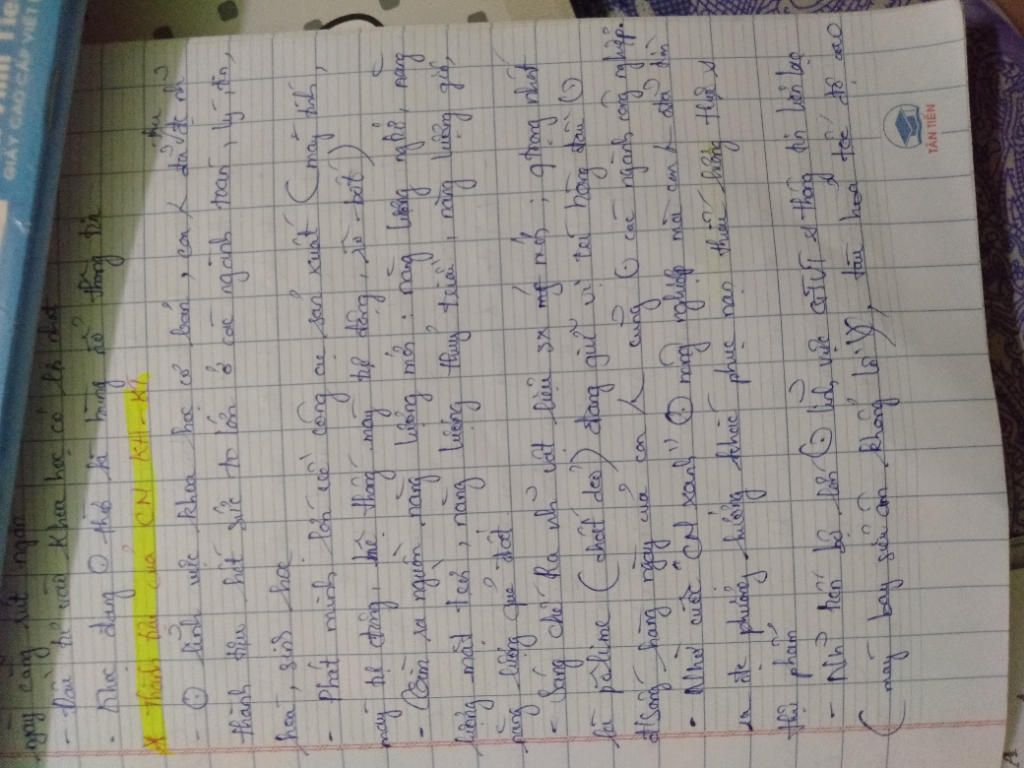 ngày càng rút ngắn
- Đầu tư vào khoa học có lãi nhất
- thời kì bùng nổ thông tin
* Thành tựu của CM KH - KT
- ⊙ lĩnh vực khoa học cơ bản, con đã đạt nh
thành tựu hết sức to lớn ở các ngành toán, lý, tin,
hoá, sinh học
- Phát minh lớn về công cụ sản xuất (máy tính,
máy tự động, hệ thống máy tự động, rô-bốt)
- Tìm ra nguồn năng lượng mới: năng lượng ng tử, năng
lượng mặt trời, năng lượng thuỷ triều, năng lượng gió,
năng lượng
- Sáng chế ra vật liệu sx mới; qtrọng nhất
là pôlime (chất dẻo) đang giữ vị trí hàng đầu ⊙
đ/sống hằng ngày của con cũng ⊙ các ngành công nghiệp.
- Nhờ cuộc "CM xanh" ⊙ nông nghiệp mà con đã tìm
ra đc phương hướng khắc phục nạn thiếu lương thực,
thực phẩm
- Những tiến bộ lớn ⊙ lĩnh vực GTVT, thông tin liên lạc
(máy bay siêu âm khổng lồ, tàu hoả tốc độ cao
TÂN TIẾN
GIẤY CAO CẤP VIẾT